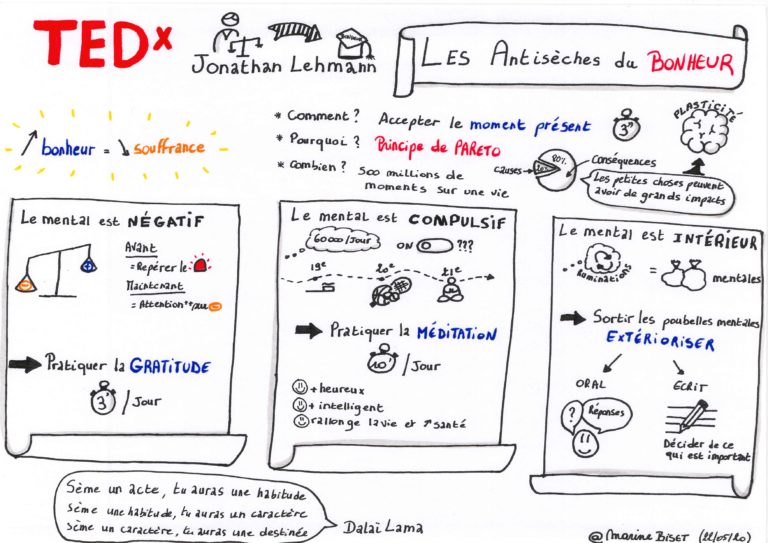 TEDx
Jonathan Lehmann
LES Antisèches du BONHEUR
bonheur = souffrance
* Comment ? Accepter le moment présent
3"
* Pourquoi ? Principe de PARETO
* Combien ? 500 millions de
moments sur une vie
PLASTICITÉ
causes
20%
80%
Conséquences
Les petites choses peuvent
avoir de grands impacts
Le mental est NÉGATIF
Avant
= Repérer le
Maintenant
= Attention
Pratiquer la GRATITUDE
3' / Jour
Le mental est COMPULSIF
60000/Jour
ON ???
19e 20e 21e
Pratiquer la MÉDITATION
10' / Jour
+ heureux
+ intelligent
rallonge la vie et ↑ santé
Le mental est INTÉRIEUR
Ruminations = mentales
Sortir les poubelles mentales
EXTÉRIORISER
ORAL
ECRIT
?
Réponses
Décider de ce
qui est important
Sème un acte, tu auras une habitude
Sème une habitude, tu auras un caractère
Sème un caractère, tu auras une destinée
Dalaï Lama
@Marine BISET (22/05/20)